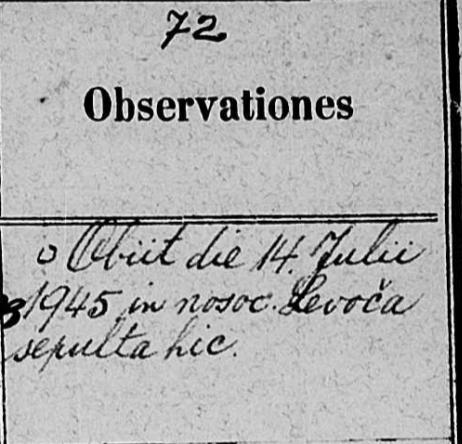 72
Observationes
o Obiit die 14. Julii
1945 in nosoc. Levoča
sepulta hic.